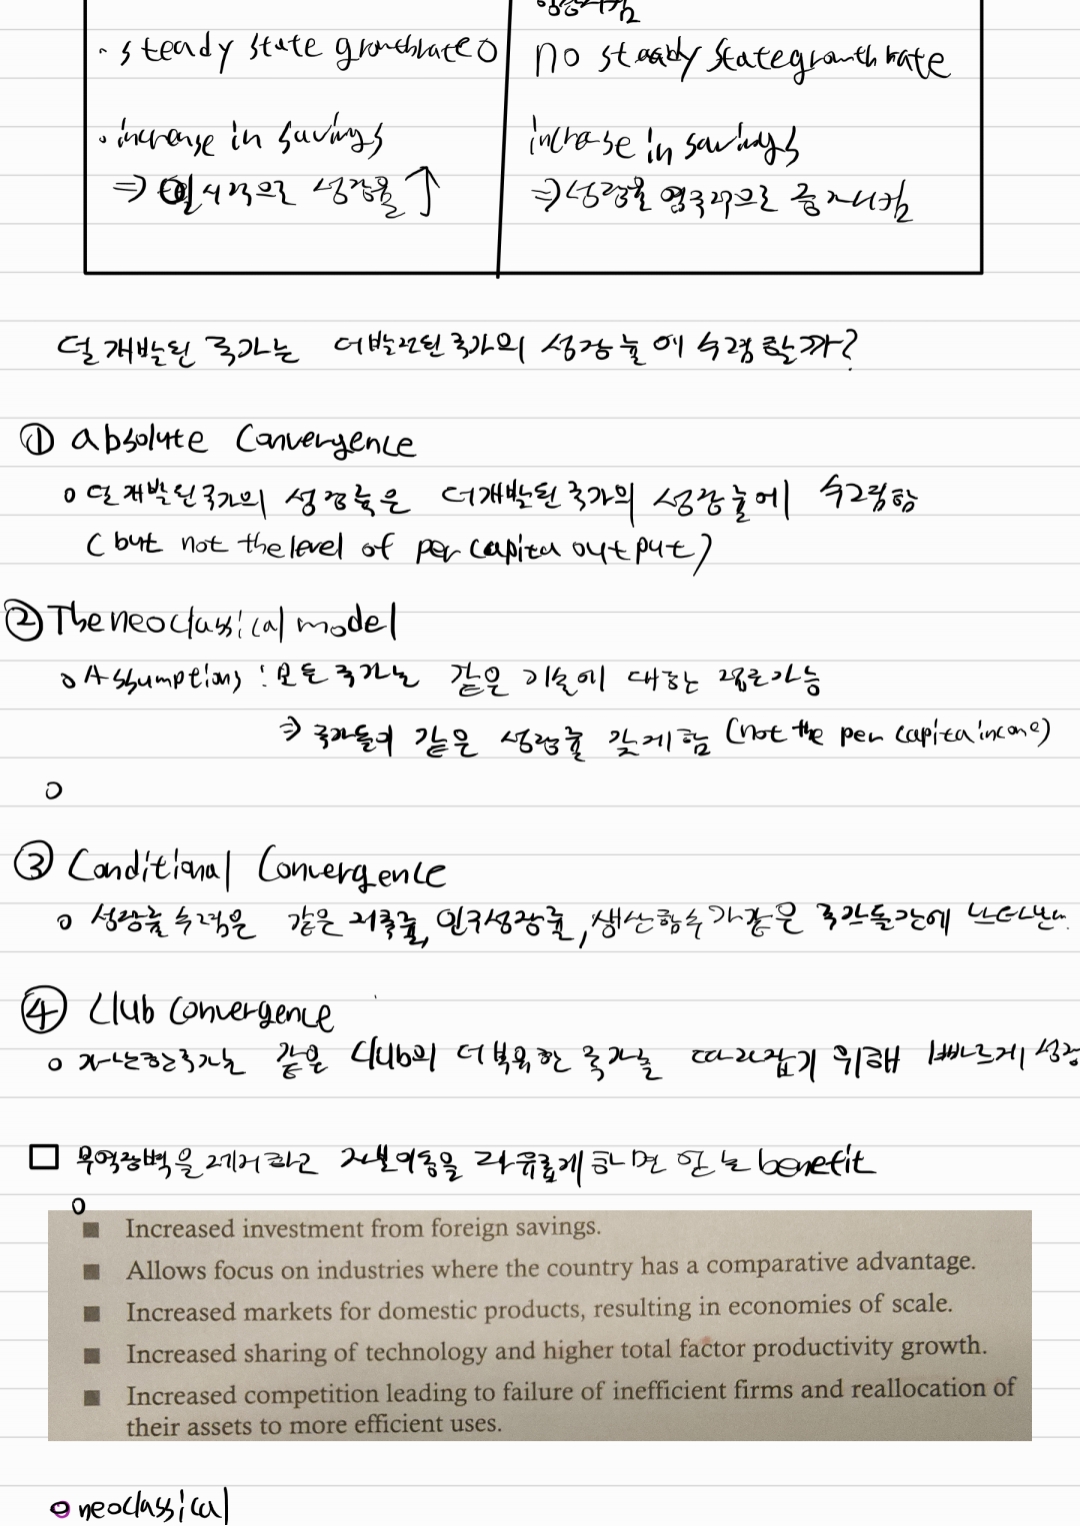 · steady state growth rate O
no steady state growth rate
· increase in savings
increase in savings
⇒ 일시적으로 성장율 ↑
⇒ 성장율 영구적으로 증가시킴
덜 개발된 국가는 더 발전된 국가의 성장율에 수렴할까?
① absolute Convergence
o 덜 개발된 국가의 성장율은 더 개발된 국가의 성장율에 수렴함
( but not the level of per capita output)
② The neoclassical model
o Assumptions : 모든 국가는 같은 기술에 대해 접근가능
⇒ 국가들이 같은 성장율 갖게함 (not the per capita income)
o
③ Conditional Convergence
o 성장율 수렴은 같은 저축율, 인구성장율, 생산함수가 같은 국가들간에 나타난다.
④ Club Convergence
o 가난한 국가는 같은 club의 더 부유한 국가를 따라잡기 위해 빠르게 성장
□ 무역장벽을 제거하고 자본이동을 자유롭게 하면 얻는 benefit
o
■ Increased investment from foreign savings.
■ Allows focus on industries where the country has a comparative advantage.
■ Increased markets for domestic products, resulting in economies of scale.
■ Increased sharing of technology and higher total factor productivity growth.
■ Increased competition leading to failure of inefficient firms and reallocation of
their assets to more efficient uses.
o neoclassical